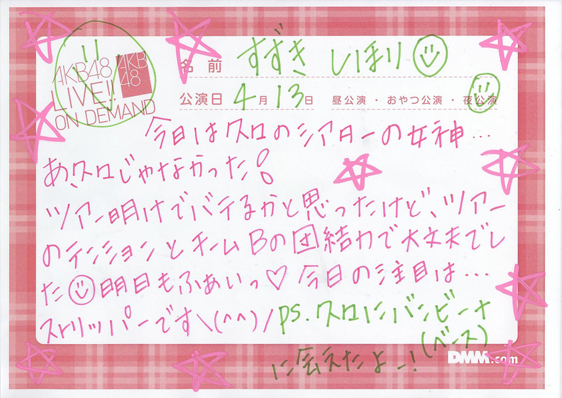 AKB48
LIVE!!
ON DEMAND
AKB
48
名 前 すずき しほり
公演日 4月13日 昼公演・おやつ公演・夜公演
今日は久々のシアターの女神…
あ、久々じゃなかった!
ツアー明けでバテるかと思ったけど、ツアー
のテンションとチームBの団結力で大丈夫でし
た 明日もふぁいっ♡ 今日の注目は…
ストリッパーです\(^^)/ PS.久々にバンビーナ
(ベース)
に会えたよー!
DMM.com